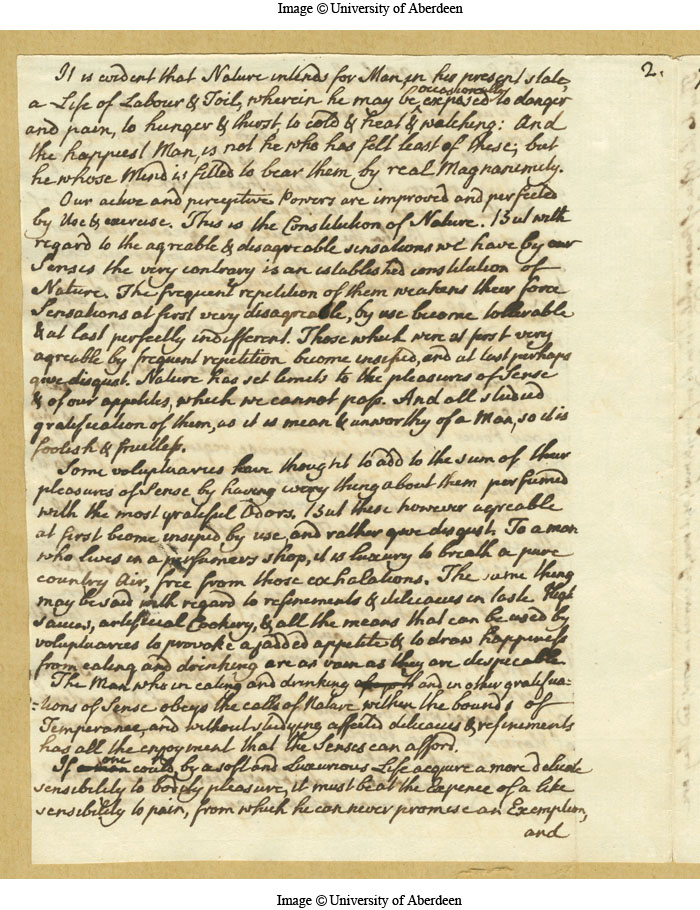 Image © University of Aberdeen
2.
It is evident that Nature intends for Man in his present state,
a Life of Labour & Toil, wherein he may be occasionally exposed to danger
and pain, to hunger & thirst, to cold & heat & watching: And
the happiest Man, is not he who has felt least of these; but
he whose Mind is fitted to bear them by real Magnanimity.
Our active and perceptive Powers are improved and perfected
by Use & exercise. This is the Constitution of Nature. But with
regard to the agreable & disagreable sensations we have by our
Senses the very contrary is an established constitution of
Nature. The frequent repetition of them weakens their force
Sensations at first very disagreable, by use become tollerable
& at last perfectly indifferent. Those which were at first very
agreable by frequent repetition become insipid, and at last perhaps
give disgust. Nature has set limits to the pleasures of Sense
& of our appetites, which we cannot pass. And all studied
gratification of them, as it is mean & unworthy of a Man, so it is
foolish & fruitless.
Some voluptuaries have thought to add to the sum of their
pleasures of Sense by having every thing about them perfumed
with the most grateful Odors. But these however agreeable
at first become insipid by use, and rather give disgust. To a man
who lives in a perfumers shop, it is luxury to breath a pure
country Air, free from those exhalations. The same thing
may be said with regard to refinements & delicacies in taste. High
sauces, artificial Cookery, & all the means that can be used by
voluptuaries to provoke a jadded appetite & to draw happiness
from eating and drinking are as vain as they are despicable
The Man who in eating and drinking and in other gratifica-
-tions of Sense obeys the calls of Nature within the bounds of
Temperance, and without studying affected delicacies & refinements
has all the enjoyment that the Senses can afford.
If a man one could by a soft and Luxurious Life acquire a more delicate
sensibility to bodily pleasure, it must be at the Expence of a like
sensibility to pain, from which he can never promise an Exemption,
and
Image © University of Aberdeen